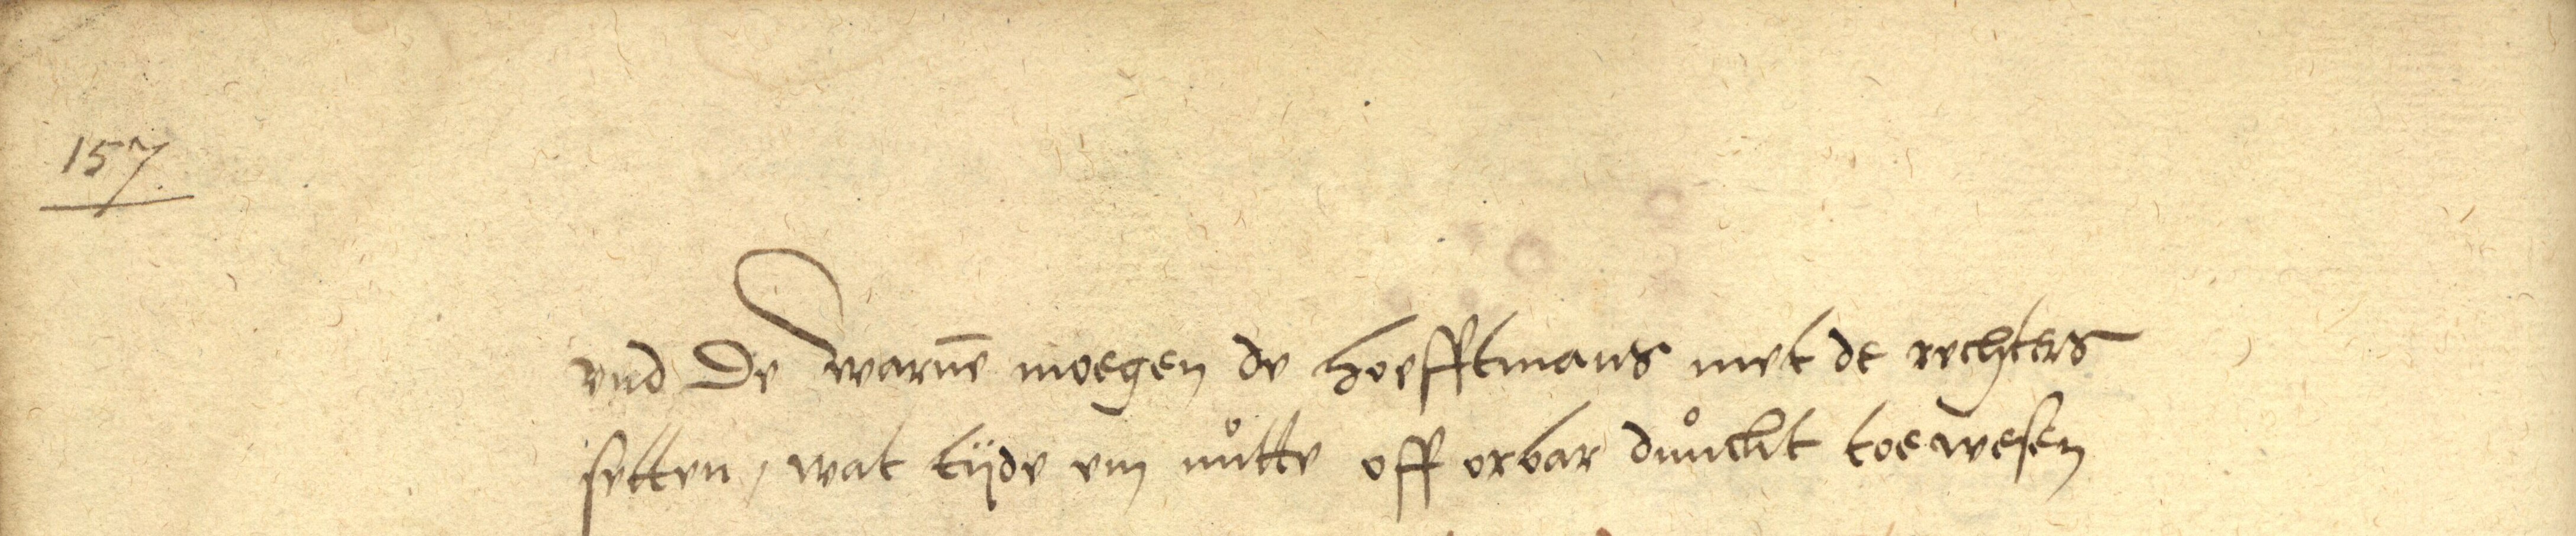 157.
vnd De warue moegen de hoefftmans met de rechters
setten, wat tijde em nůtte off orbar důncht toe wesen